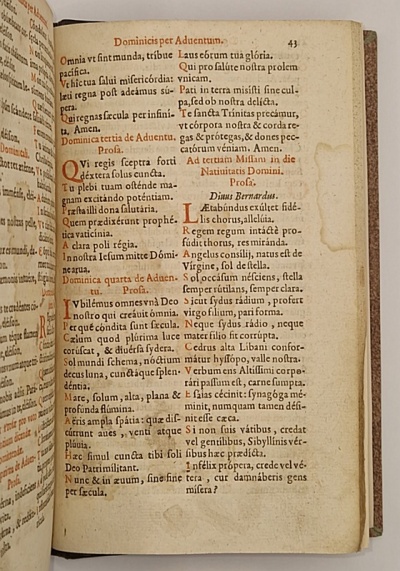 Dominicis per Aduentum.
43
Omnia vt sint munda, tribue
pacifica.
Vt hîc tua salui misericórdia:
læti regna post adeámus sú-
pera.
Qui regnas sæcula per infini-
ta, Amen.
Dominica tertia de Aduentu.
Prosa.
QVi regis sceptra forti
déxtera solus cuncta.
Tu plebi tuam osténde ma-
gnam excitándo poténtiam.
Præsta illi dona salutária.
Quem prædixérunt prophé-
tica vaticinia.
A clara poli régia.
In nostra Iesum mitte Dómi-
ne arua.
Dominica quarta de Aduen-
tu. Prosa.
IVbilémus omnes vnà Deo
nostro qui creáuit ómnia.
Per què condita sunt sæcula.
Cælum quod plúrima luce
coruscat, & diuérsa sydera.
Sol mundi schema, nóctium
decus luna, cunctáque splen-
déntia.
Mare, solum, alta, plana &
profunda flúmina.
Aëris ampla spátia: quæ dis-
cúrrunt aues, venti atque
plúuia.
Hæc simul cuncta tibi soli
Deo Patri militant.
Nunc & in æuum, sine fine
per sæcula.
Laus eórum tua glória.
Qui pro salúte nostra prolem
vnicam.
Pati in terra misisti sine cul-
pa, sed ob nostra delicta.
Te sancta Trinitas precámur,
vt córpora nostra & corda re-
gas & prótegas, & dones pec-
catórum véniam. Amen.
Ad tertiam Missam in die
Natiuitatis Domini.
Prosa.
Diuus Bernardus.
LÆtabúndus exúltet fidé-
lis chorus, allelúia.
Regem regum intáctè pro-
fudit thorus, res miránda.
Angelus consilij, natus est de
Virgine, sol de stella.
Sol occásum nésciens, stella
semper rútilans, semper clara.
Sicut sydus rádium, profert
virgo filium, pari forma.
Neque sydus radio, neque
mater filio fit corrúpta.
Cedrus alta Libani confor-
mátur hyssópo, valle nostra.
Verbum ens Altissimi corpo-
rári passum est, carne sumpta.
Esaias cécinit: synagóga mé-
minit, numquam tamen dési-
nit esse cæca.
Si non suis vátibus, credat
vel gentilibus, Sibyllinis vér-
sibus hæc prædicta.
Infélix própera, crede vel vé-
tera, cur damnáberis gens
misera?